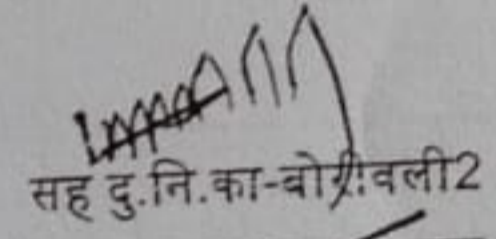 सह दु.नि.का-बोरीवली2